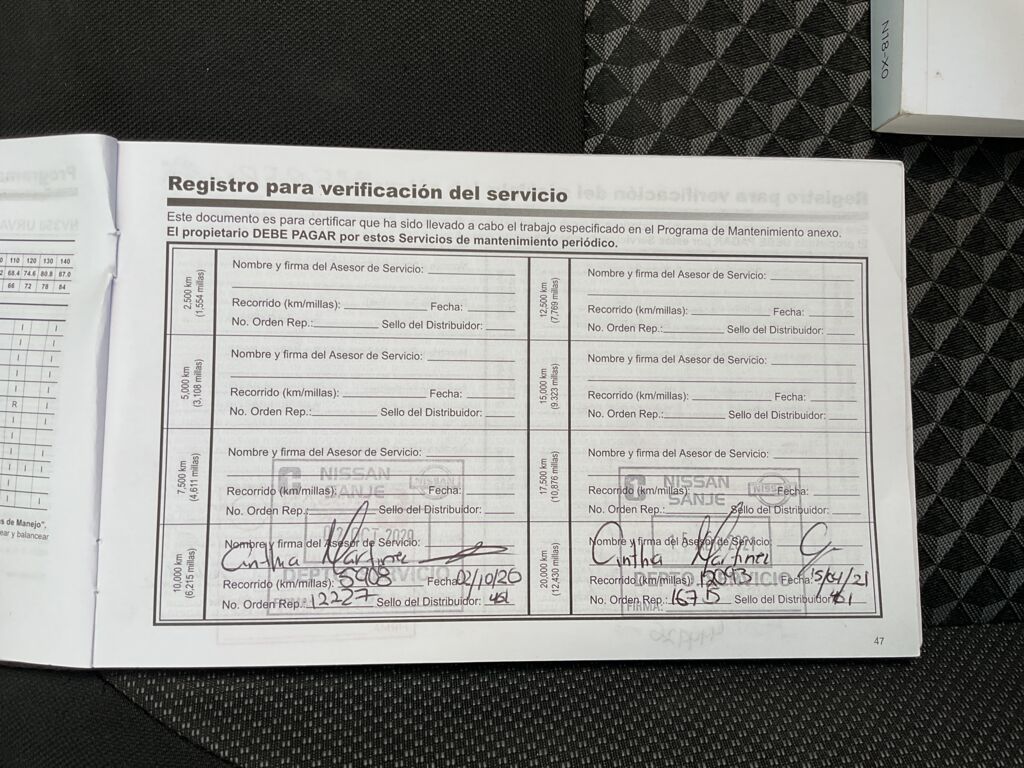 N18-X0
Registro para verificación del servicio
Este documento es para certificar que ha sido llevado a cabo el trabajo especificado en el Programa de Mantenimiento anexo.
El propietario DEBE PAGAR por estos Servicios de mantenimiento periódico.
2,500 km
(1,554 millas)
Nombre y firma del Asesor de Servicio:
Recorrido (km/millas): Fecha:
No. Orden Rep.: Sello del Distribuidor:
5,000 km
(3,108 millas)
Nombre y firma del Asesor de Servicio:
Recorrido (km/millas): Fecha:
No. Orden Rep.: Sello del Distribuidor:
7,500 km
(4,611 millas)
Nombre y firma del Asesor de Servicio:
Recorrido (km/millas): Fecha:
No. Orden Rep.: Sello del Distribuidor:
NISSAN
SANJE
NISSAN
02 OCT 2020
10,000 km
(6,215 millas)
Nombre y firma del Asesor de Servicio:
Cinthia Martinez
Recorrido (km/millas): 5908 Fecha: 02/10/20
DEPTO. SERVICIO
No. Orden Rep.: 12227 Sello del Distribuidor: 461
12,500 km
(7,769 millas)
Nombre y firma del Asesor de Servicio:
Recorrido (km/millas): Fecha:
No. Orden Rep.: Sello del Distribuidor:
15,000 km
(9.323 millas)
Nombre y firma del Asesor de Servicio:
Recorrido (km/millas): Fecha:
No. Orden Rep.: Sello del Distribuidor:
17,500 km
(10,876 millas)
Nombre y firma del Asesor de Servicio:
Recorrido (km/millas): Fecha:
No. Orden Rep.: Sello del Distribuidor:
NISSAN
SANJE
NISSAN
20,000 km
(12,430 millas)
Nombre y firma del Asesor de Servicio:
Cinthia Martinez
Recorrido (km/millas): 12093 Fecha: 15/04/21
DEPTO. SERVICIO
No. Orden Rep.: Sello del Distribuidor: 461
FIRMA:
47
110 120 130 140
68.4 74.6 80.8 87.0
66 72 78 84
R
s de Manejo",
ear y balancear